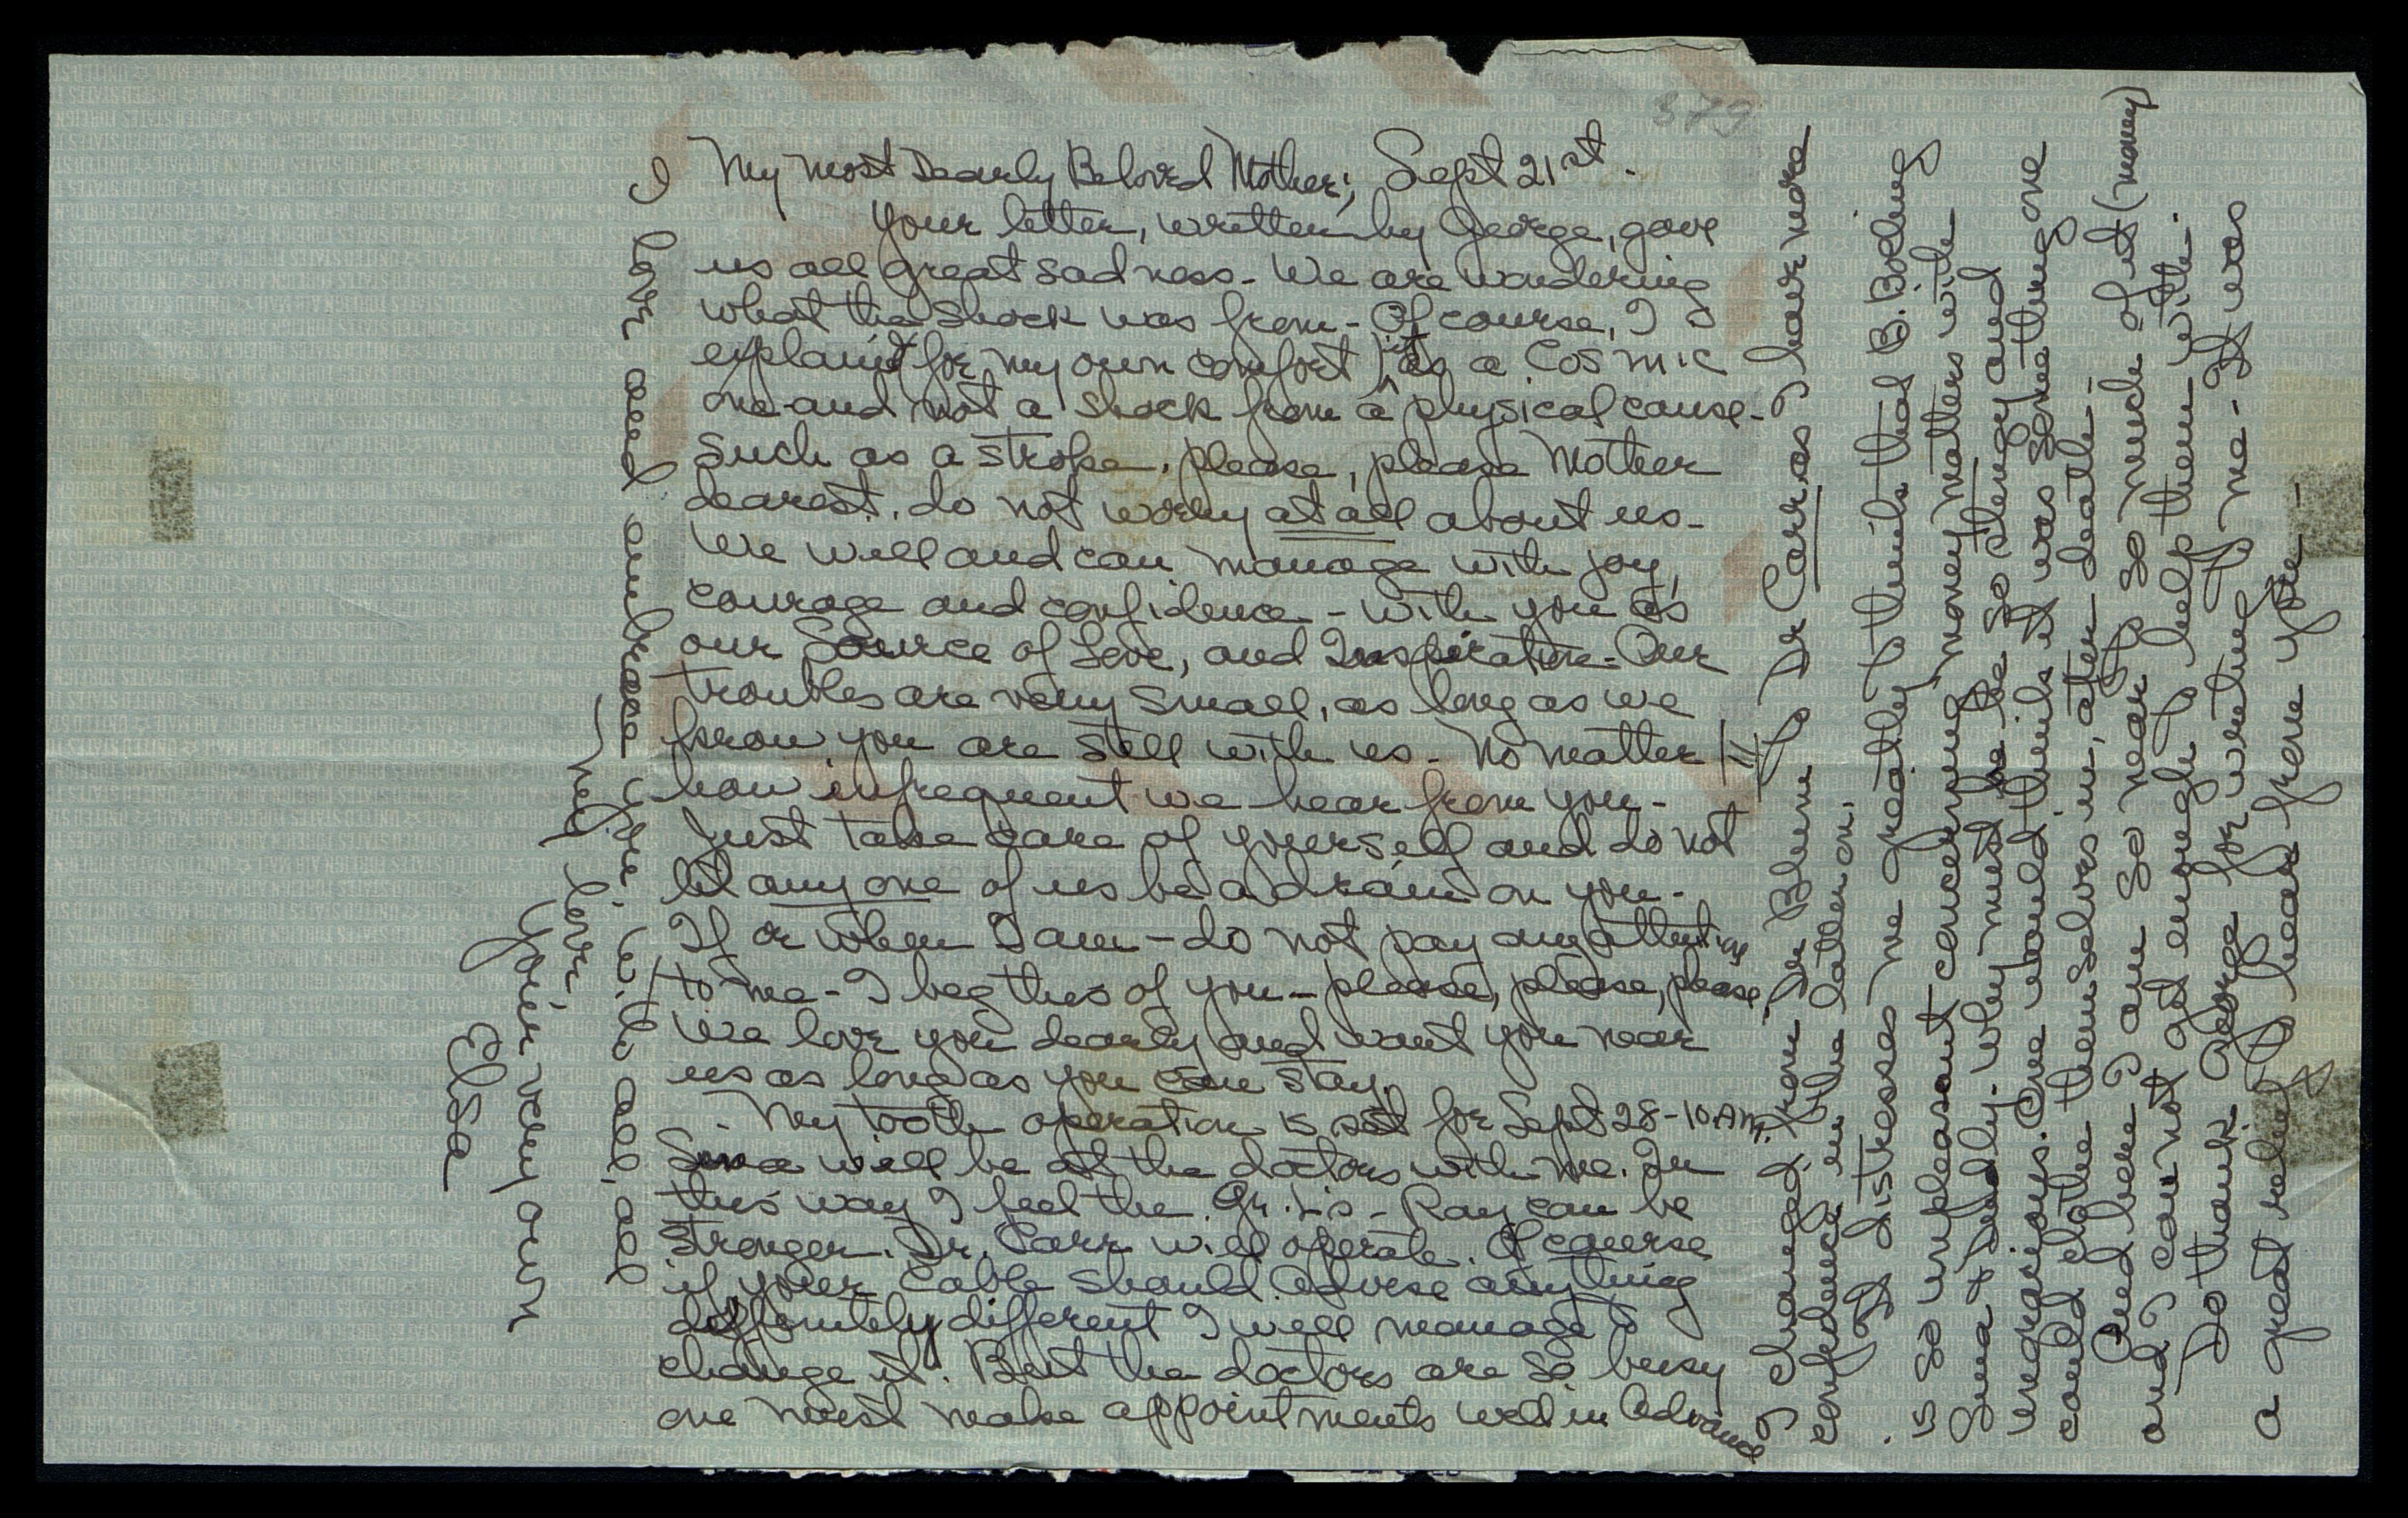 379
My most Dearly Beloved Mother; Sept 21st.
Your letter, written by George, gave
us all great sadness - We are wondering
what the shock was from - Of course, I
explained for my own comfort it as a Cosmic
one and not a shock from a physical cause -
Such as a stroke. Please, please Mother
dearest, do not worry at all about us -
We will and can manage with joy,
courage and confidence - with you as
our Source of Love, and Inspiration - Our
troubles are very small, as long as we
know you are still with us - No matter
how infrequent we hear from you -
Just take care of yourself and do not
let any one of us be a drain on you -
If or when I am - do not pay any attention
to me - I beg this of you - please, please, please
We love you dearly and want you near
us as long as you can stay.
My tooth operation is set for Sept 28 - 10 AM.
Sina will be at the doctors with me. In
this way I feel the Ray can be
stronger. Dr. Carr will operate. Of course
if your Cable should advise anything
definitely different I will manage to
change it. But the doctors are so busy
one must make appointments well in advance
I changed from Dr Blum to Dr Carr as I have more
confidence in the latter on.
It distresses me greatly to think that B. Boeking
is so unpleasant concerning money matters with
Sina & Dudly - why must he be so stingy and
One would think it was something one
could clothe themselves in, after death -
And here I am so near to so much of it (money)
and I can not get enough to help them with.
Do thank George for writing to me - It was
a great relief to hear from you -
I love and embrace you with all, all
my love -
Your very own
Elsa